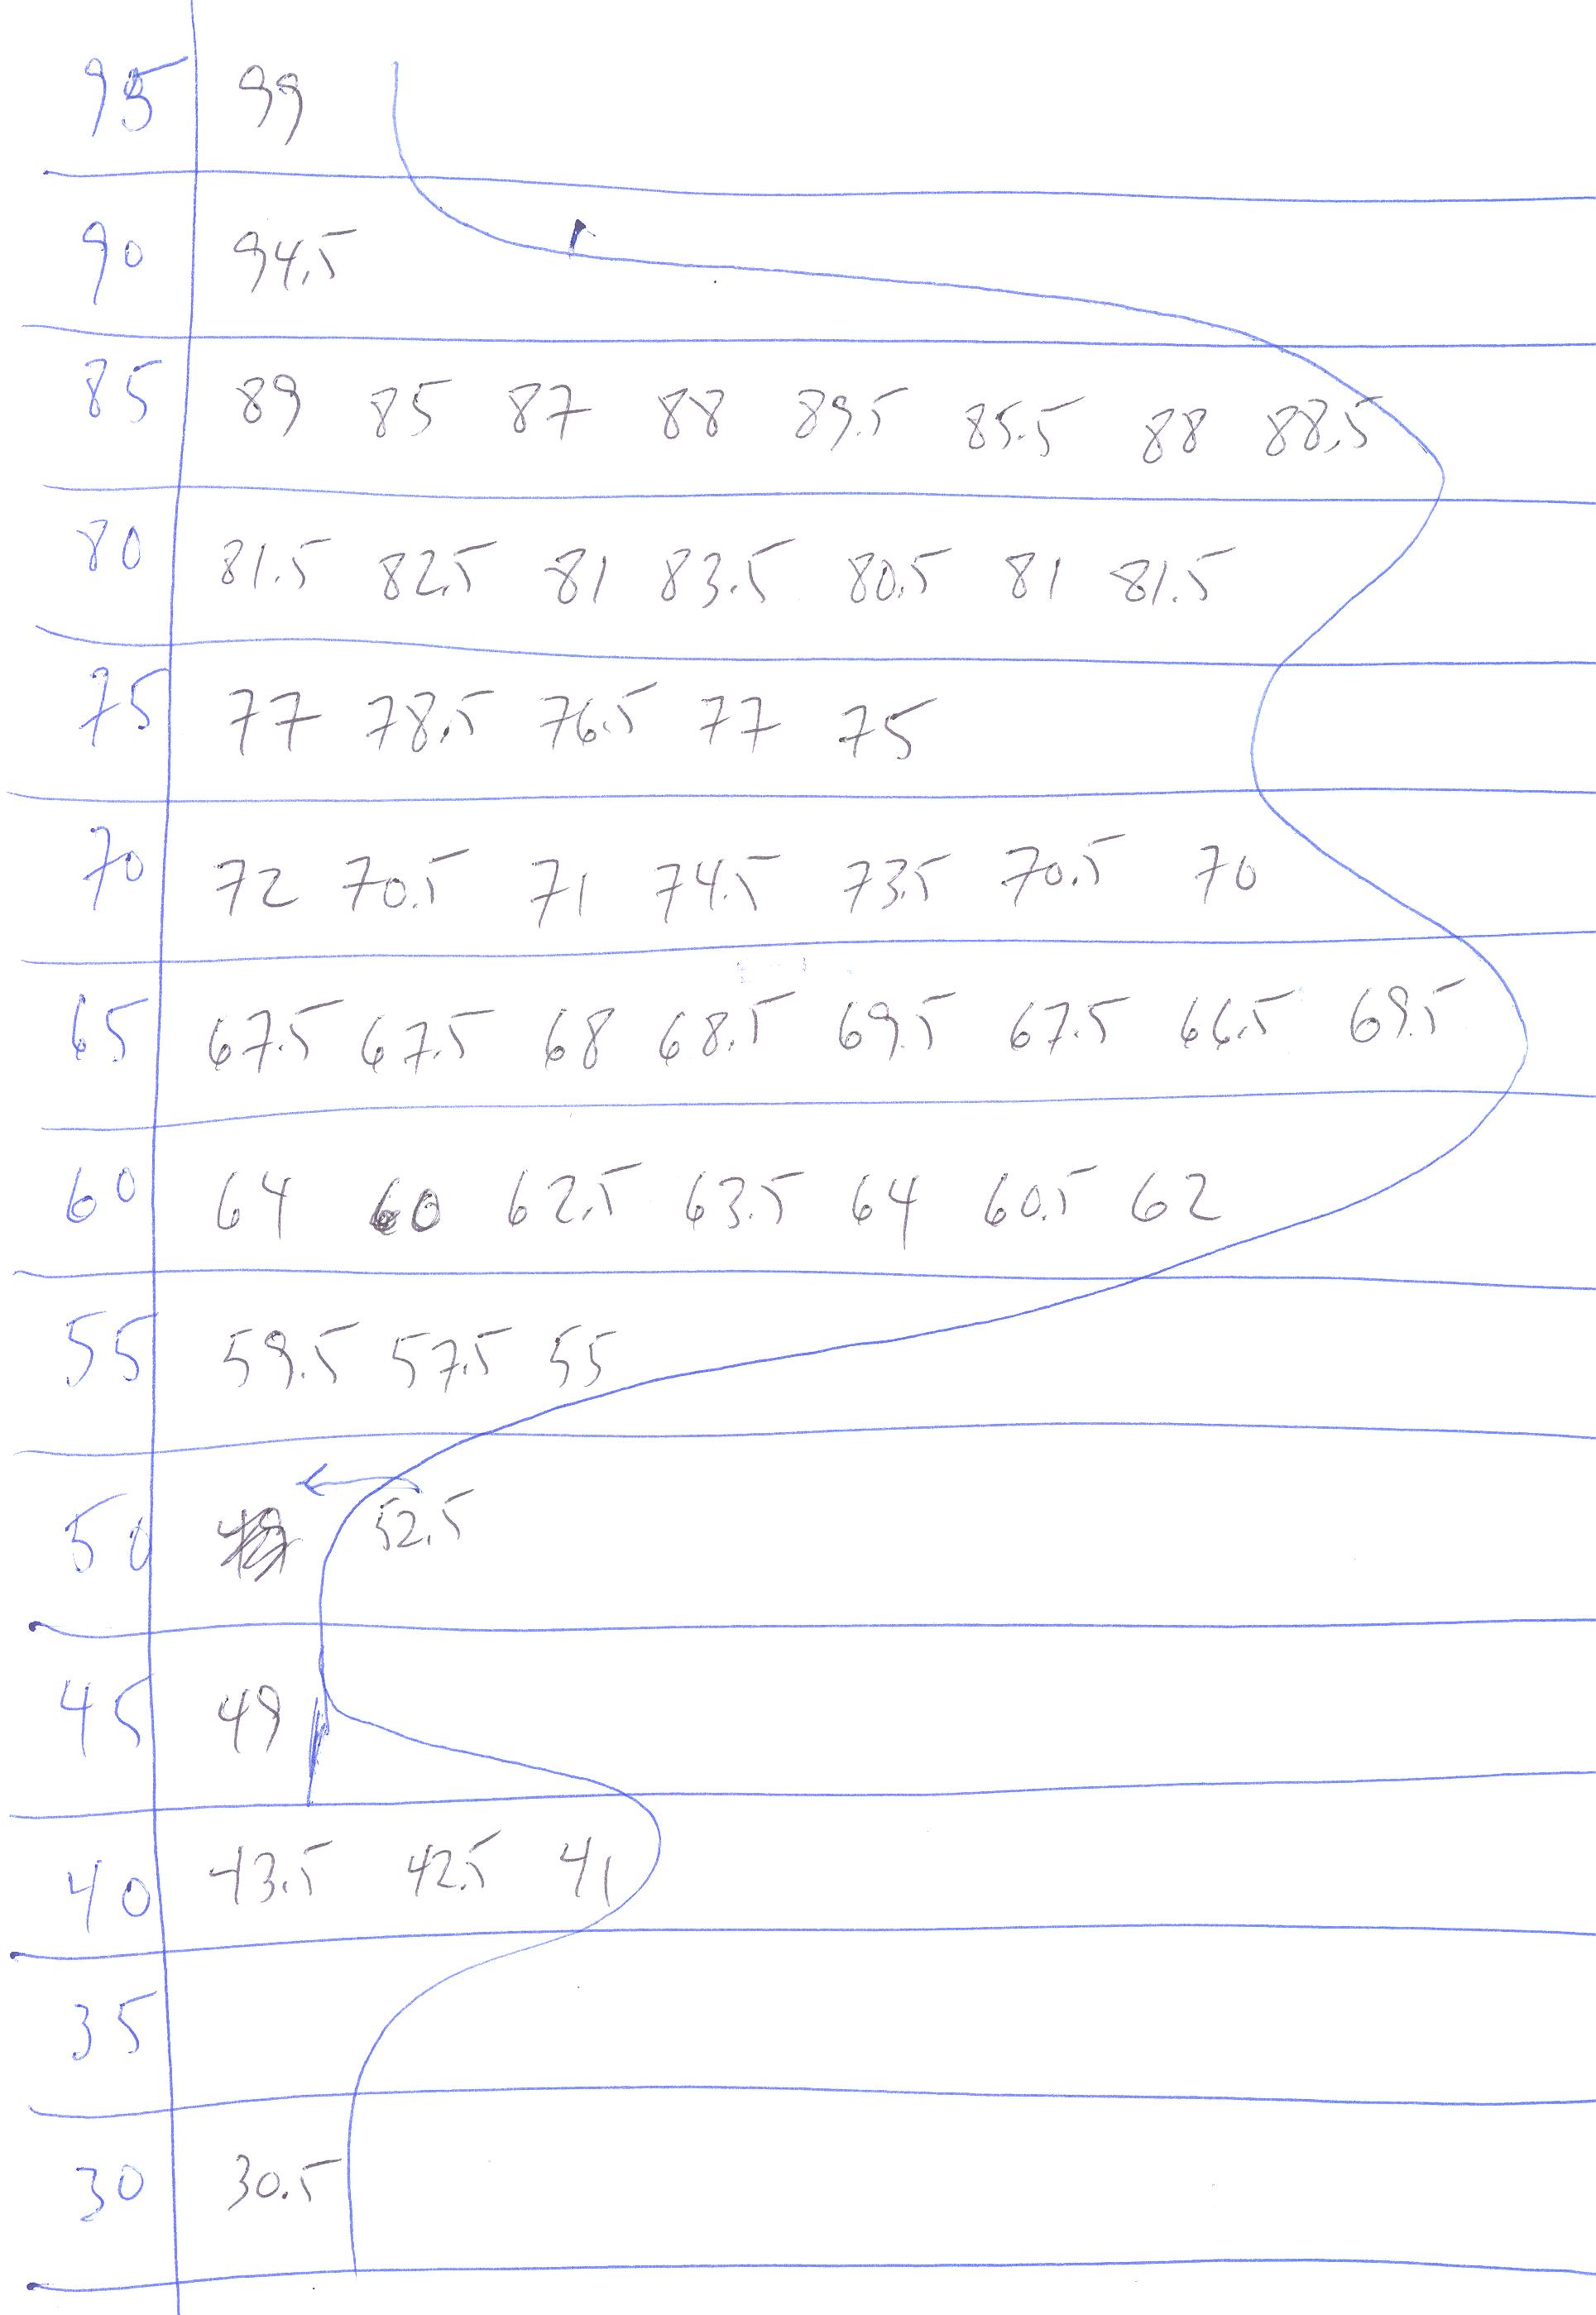 95 99
90 94.5
85 89 85 87 88 89.5 85.5 88 88.5
80 81.5 82.5 81 83.5 80.5 81 81.5
75 77 78.5 76.5 77 75
70 72 70.5 71 74.5 73.5 70.5 70
65 67.5 67.5 68 68.5 69.5 67.5 66.5 69.5
60 64 60 62.5 63.5 64 60.5 62
55 59.5 57.5 55
50 52.5
45 49
40 43.5 42.5 41
35
30 30.5